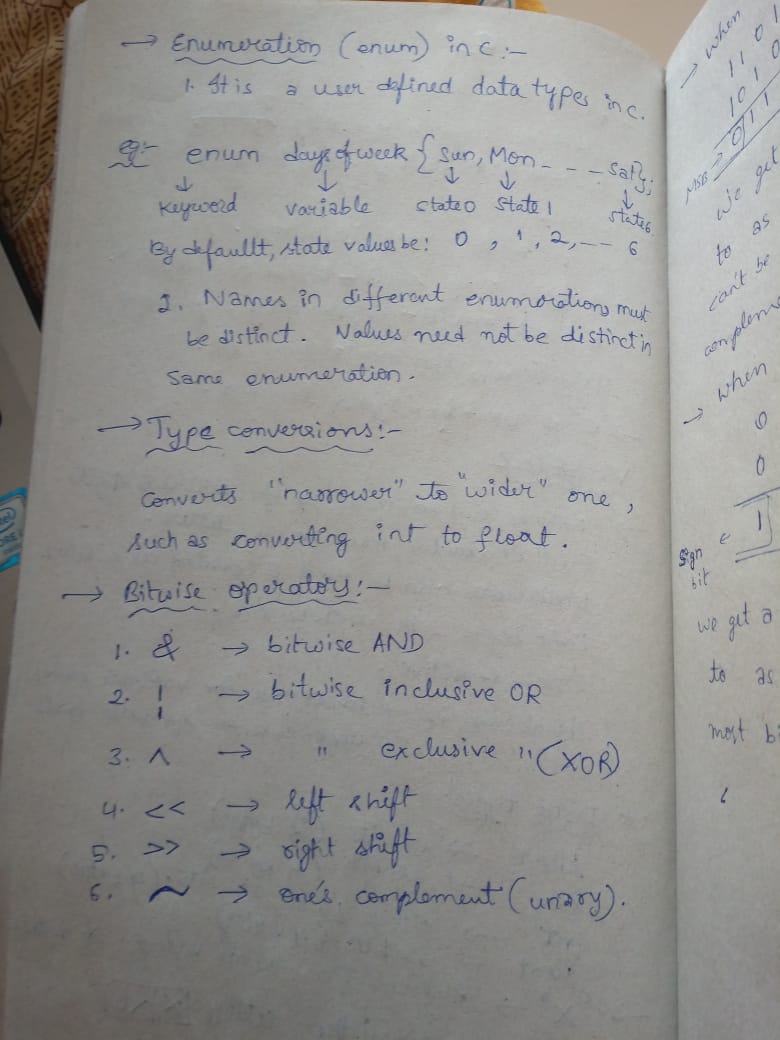 → Enumeration (enum) in c :-
1. It is a user defined data types in c.
eg:- enum daysofweek { Sun, Mon - - - Sat};
↓ ↓ ↓ ↓ ↓
Keyword variable state0 State 1 state6
By defaullt, state values be: 0 , 1, 2, --- 6
2. Names in different enumerations must
be distinct. Values need not be distinct in
Same enumeration.
→ Type conversions:-
Converts "narrower" to "wider" one,
such as converting int to float.
→ Bitwise operators:-
1. & → bitwise AND
2. ¦ → bitwise inclusive OR
3. ^ → " exclusive " (XOR)
4. << → left shift
5. >> → right shift
6. ~ → one's complement (unary).
→ when
1 1 0 1
10 1 0
0 1 1
MSB →
we get
to as
can't be
complem
→ when
0
0
1
Sign bit
we get a
to as
most bi
intel